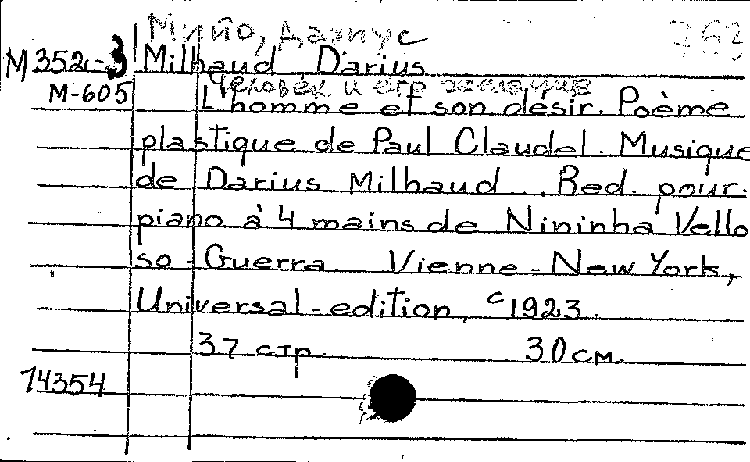 Мийо, Дариус 763
М 352-3 Milhaud Darius
М-605 Человек и его желание
L'homme et son désir. Poème
plastique de Paul Claudel. Musique
de Darius Milhaud.. Red. pour.
piano à 4 mains de Nininha Vello
so-Guerra Vienne-New York,
Universal-edition, c1923.
37 стр. 30 см.
14354